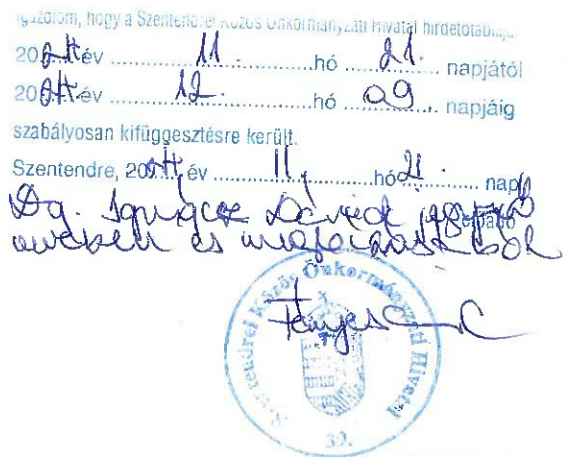 igazolom, hogy a Szentendrei Közös Önkormányzati Hivatal hirdetőtábláján
2024 év 11. hó 21. napjától
2024 év 12. hó 09. napjáig
szabályosan kifüggesztésre került.
Szentendre, 2024 év 11. hó 21. nap
Dg. Dávid jegyző
nevében és megbízásából
Szentendrei Közös Önkormányzati Hivatal
39.